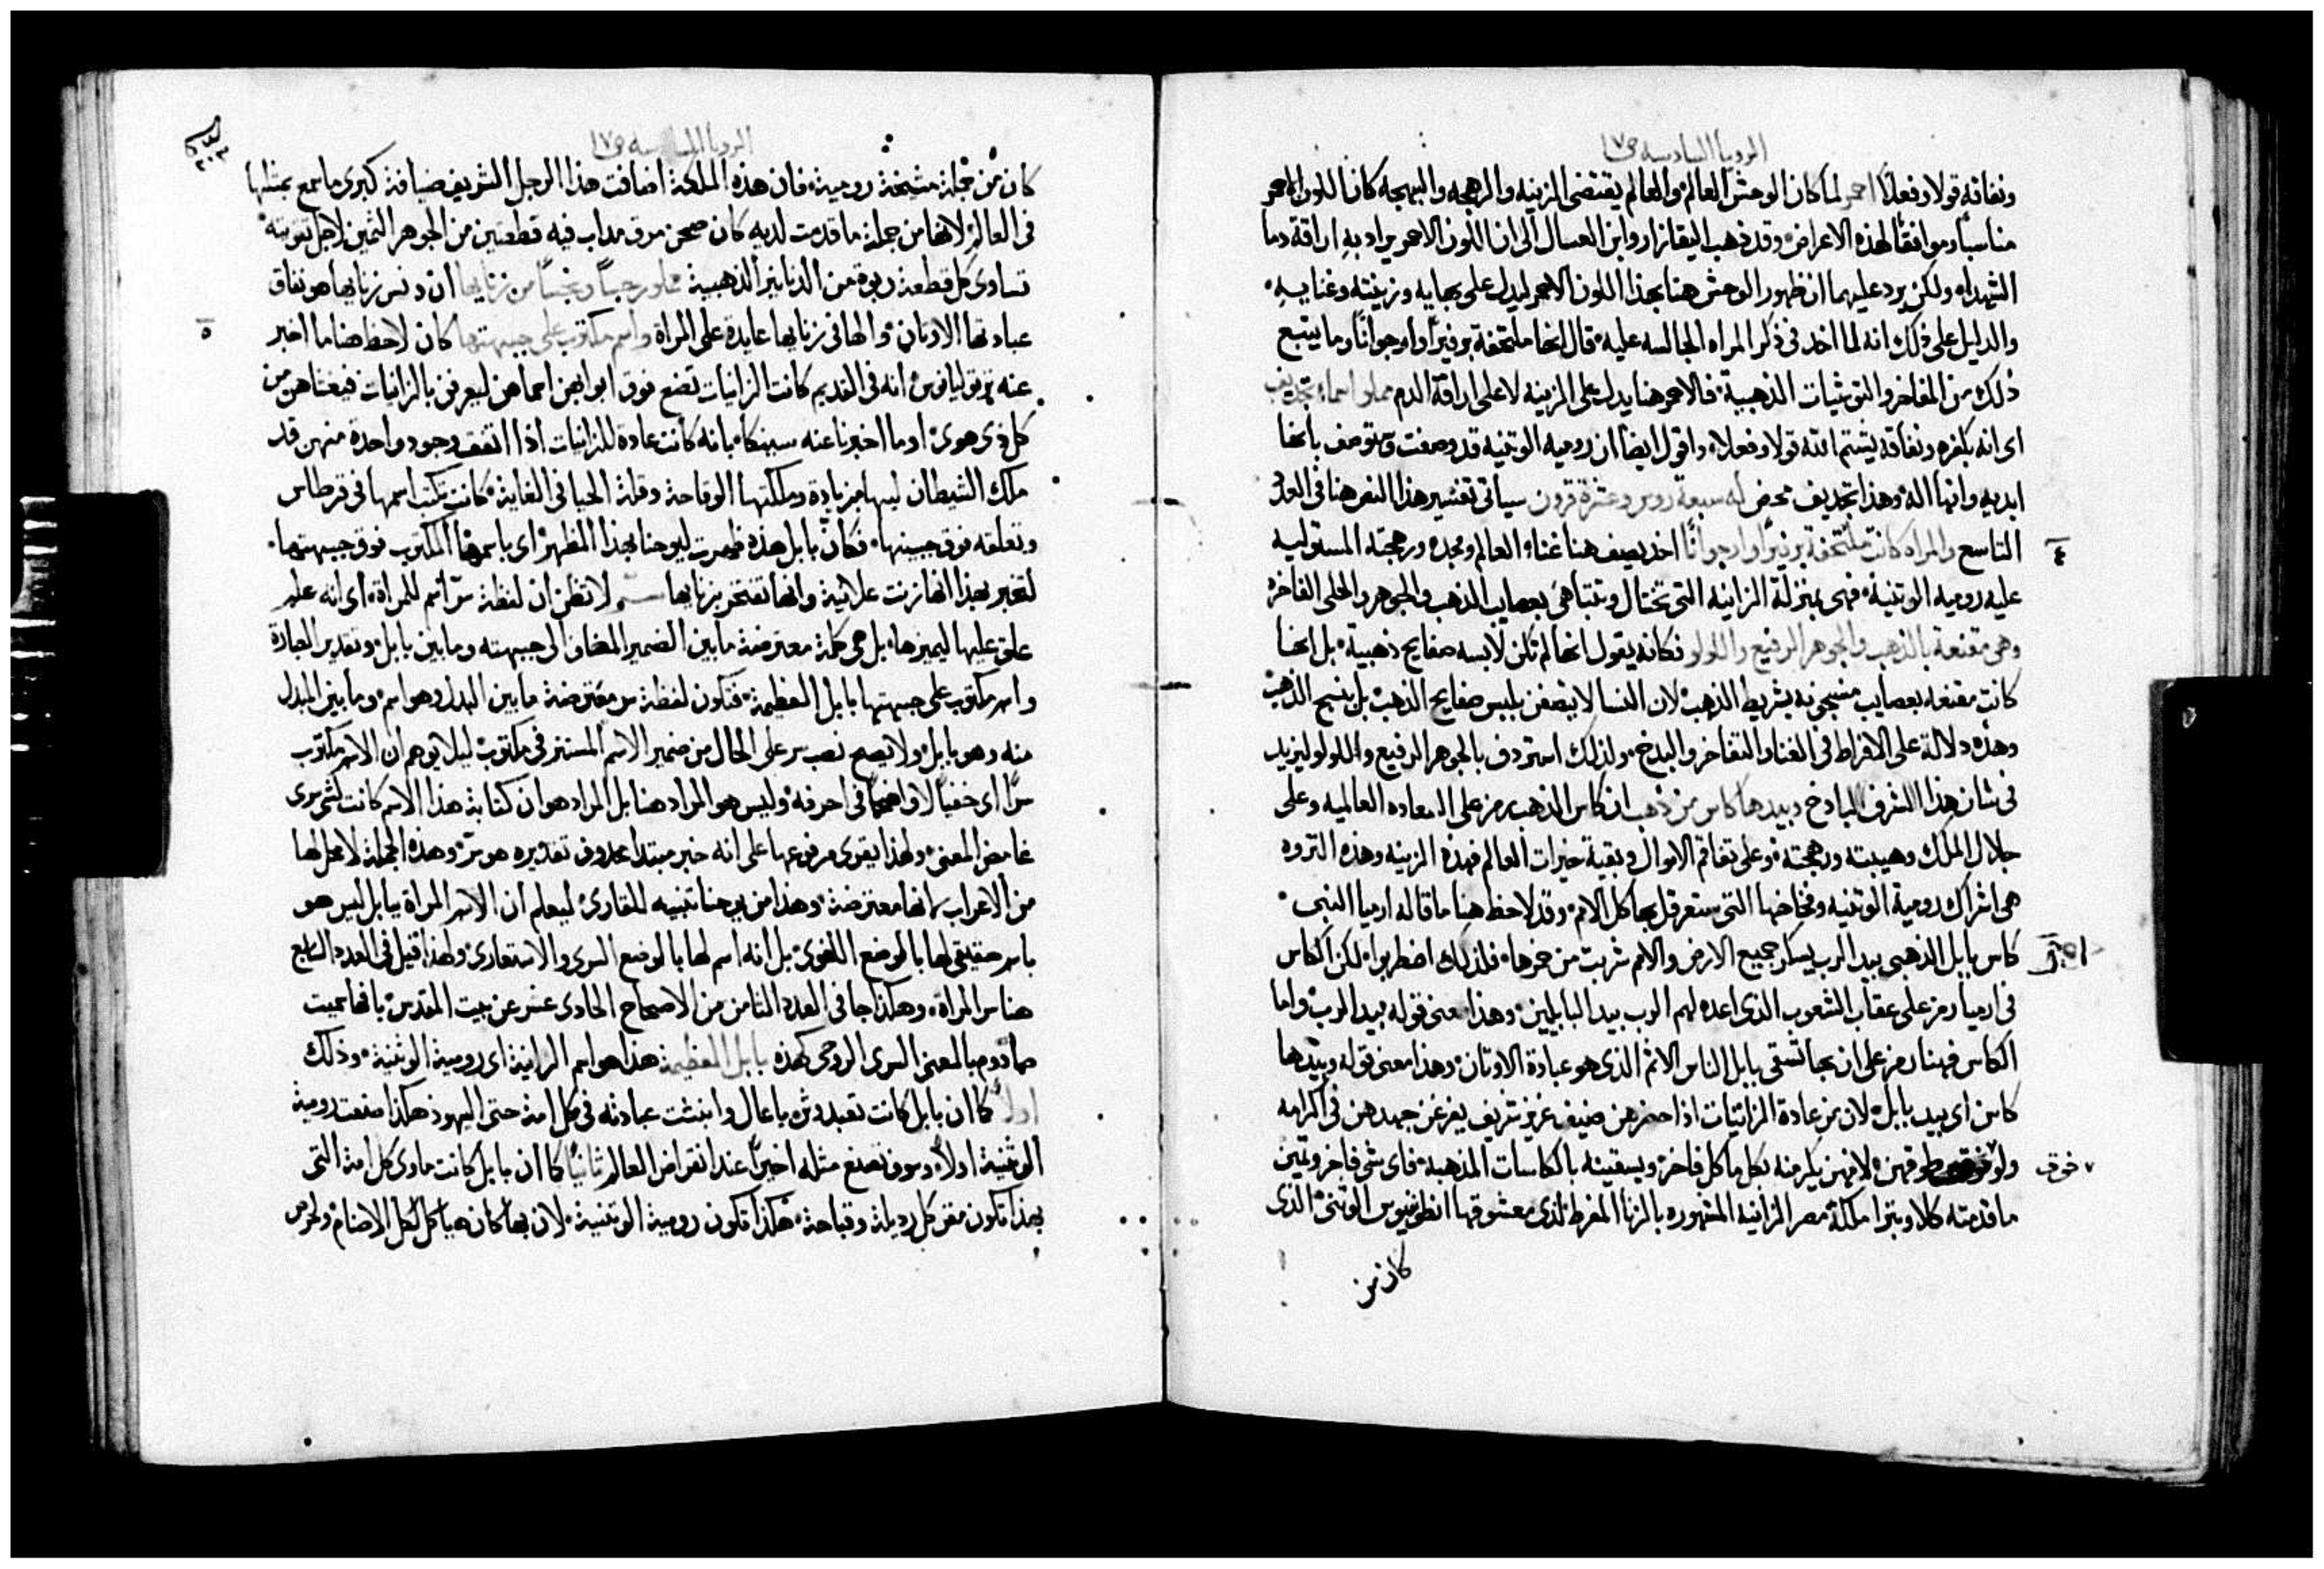 الرويا السادسه ص١٧
ونفاقه قولا وفعلا احمر لما كان الوحش العالم والعالم يقتضى الزينه والرهجه والبهجه كان اللون الاحمر
مناسبا وموافقا لهذه الاعراض وقد ذهب اليقازار وابن العسال الى ان اللون الاحمر يراد به اراقة دما
الشهداء ولكن يرد عليهما ان ظهور الوحش هنا بهذا اللون الاحمر ليدل على بهايه وزينته وغنايه
والدليل على ذلك انه لما اخذ فى ذكر المراه الجالسه عليه قال انها ملتحفة برفيرا وارجوانا وما يتبع
ذلك من المفاخر والتوشيات الذهبية فالاحمر هنا يدل على الزينه لا على اراقة الدم مملو اسماء تجديف
اى انه بكفره ونفاقه يشتم الله قولا وفعلا واقول ايضا ان روميه الوثنيه قد وصفت وتوصف بانها
ابديه وانها اله وهذا تجديف محض له سبعة روس وعشرة قرون سياتى تفسير هذا النص هنا فى العدد
٤ التاسع والمراه كانت ملتحفة برفيرا وارجوانا اخذ يصف هنا غناء العالم ومجده ورهجته المستوليه
عليه روميه الوثنية فهى بمنزلة الزانيه التى تختال وتتباهى بعصايب الذهب والجوهر والحلى الفاخر
وهى مقنعة بالذهب والجوهر الرفيع واللولو فكانه يقول انها لم تكن لابسه صفايح ذهبية بل انها
كانت مقنعه بعصايب منسجونه بشريط الذهب لان النسا لا يتصفن بلبس صفايح الذهب بل بنسج الذهب
وهذه دلالة على الافراط فى الغنا والتفاخر والبدخ ولذلك استردف بالجوهر الرفيع واللولو ليزيد
فى شان هذا الشرف البادخ وبيدها كاس من ذهب ان كاس الذهب رمز على السعاده العالميه وعلى
جلال الملك وهيبته ورهجته وعلى تفاقم الاموال وبقية خيرات العالم فهذه الزينه وهذه الثروه
هى اشراك رومية الوثنيه وفخاخها التى ستعرقل بها كل الامم وقد لاحظ هنا ما قاله ارميا النبى
كاس بابل الذهبى بيد الرب يسكر جميع الارض والامم شربت من خمرها فلذلك اضطربوا لكن الكاس
فى ارميا رمز على عقاب الشعوب الذى اعده لهم الرب بيد البابليين وهذا معنى قوله بيد الرب واما
الكاس فهنا رمز على ان بها تسقى بابل الناس الاثم الذى هو عبادة الاوثان وهذا معنى قوله وبيدها
كاس اى بيد بابل لان من عادة الزانيات اذا حضرهن ضيف عزيز شريف يفرغن جهدهن فى اكرامه
ولو فوق طوقهن لانهن يكرمنه بكل ماكل فاخر ويسقينه بالكاسات المذهبة فاى شى فاخر وثمين
ما قدمته كلاوبترا ملكة مصر الزانيه المشهوره بالزنا المفرط لذى معشوقها انطونيوس الوثنى الذى
كان من
الرويا السادسه ص١٧
كان من جملة مشيخة رومية فان هذه الملكة اضافت هذا الرجل الشريف ضيافة كبرى ما سمع بمثلها
فى العالم لانها من جملة ما قدمت لديه كان صحن مرق مداب فيه قطعتين من الجوهر الثمين لاجل تقويته
تساوى كل قطعة ربوة من الدنانير الذهبية مملو رجسا ونجسا من زنايها ان دنس زنايها هو نفاق
٥ عبادتها الاوثان والها فى زنايها عايدة على المراة واسم مكتوب على جبهتها كان لاحظ هنا ما اخبر
عنه ترتوليانوس انه فى القديم كانت الزانيات تضع فوق ابوابهن اسماهن ليعرفن بالزانيات فيغشاهن من
كل ذى هوى او ما اخبرنا عنه سينكا بانه كانت عادة للزانيات اذا اتفقت وجود واحدة منهن قد
ملك الشيطان لبها بزيادة وملكتها الوقاحة وقلة الحيا فى الغاية كانت تكتب اسمها فى قرطاس
وتعلقه فوق جبينها فكان بابل هذه ظهرت ليوحنا بهذا المظهر اى باسمها المكتوب فوق جبهتها
لتخبر بهذا انها زنت علانية وانها تفتخر بزنايها سر لا تظن ان لفظة سر اسم للمراة اى انه علم
علق عليها ليميزها بل هى كلمة معترضة ما بين الضمير المضاف الى جبهته وما بين بابل وتقدير العبارة
واسم مكتوب على جبهتها بابل العظيمة فتكون لفظة سر معترضة ما بين البدل وهو اسم وما بين المبدل
منه وهو بابل ولا يصح نصب سر على الحال من ضمير الاسم المستتر فى مكتوب ليلا يوهم ان الاسم مكتوب
سرا اى خفيا لا واضحا فى احرفه وليس هو المراد هنا بل المراد هو ان كتابة هذا الاسم كانت لشى سرى
غامض المعنى ولهذا يقوى مرفوعها على انه خبر مبتدا محدوف تقديره هو سر وهذه الجملة لا محل لها
من الاعراب لانها معترضة وهذا من يوحنا تنبيه للقارى ليعلم ان الاسم المراة ببابل ليس هو
باسم حقيقى لها بالوضع اللغوى بل انه اسم لها بالوضع السرى والاستعارى ولهذا قيل فى العدد السابع
هنا سر المراة وهكذا جا فى العدد الثامن من الاصحاح الحادى عشر عن بيت المقدس بانها سميت
صادوم بالمعنى السرى الروحى كهذه بابل العظيمة هذا هو اسم الزانية اى رومية الوثنية وذلك
اولا كما ان بابل كانت تعبد وثن باعال وانبثت عبادته فى كل امة حتى اليهود هكذا صنعت رومية
الوثنية اولا وسوف تصنع مثله اخيرا عند انقراض العالم ثانيا كما ان بابل كانت ماوى كل امة التى
بهذا تكون مقر كل رديلة وقباحة هكذا تكون رومية الوثنية لان بها كان هياكل لكل الاصنام ولحرص